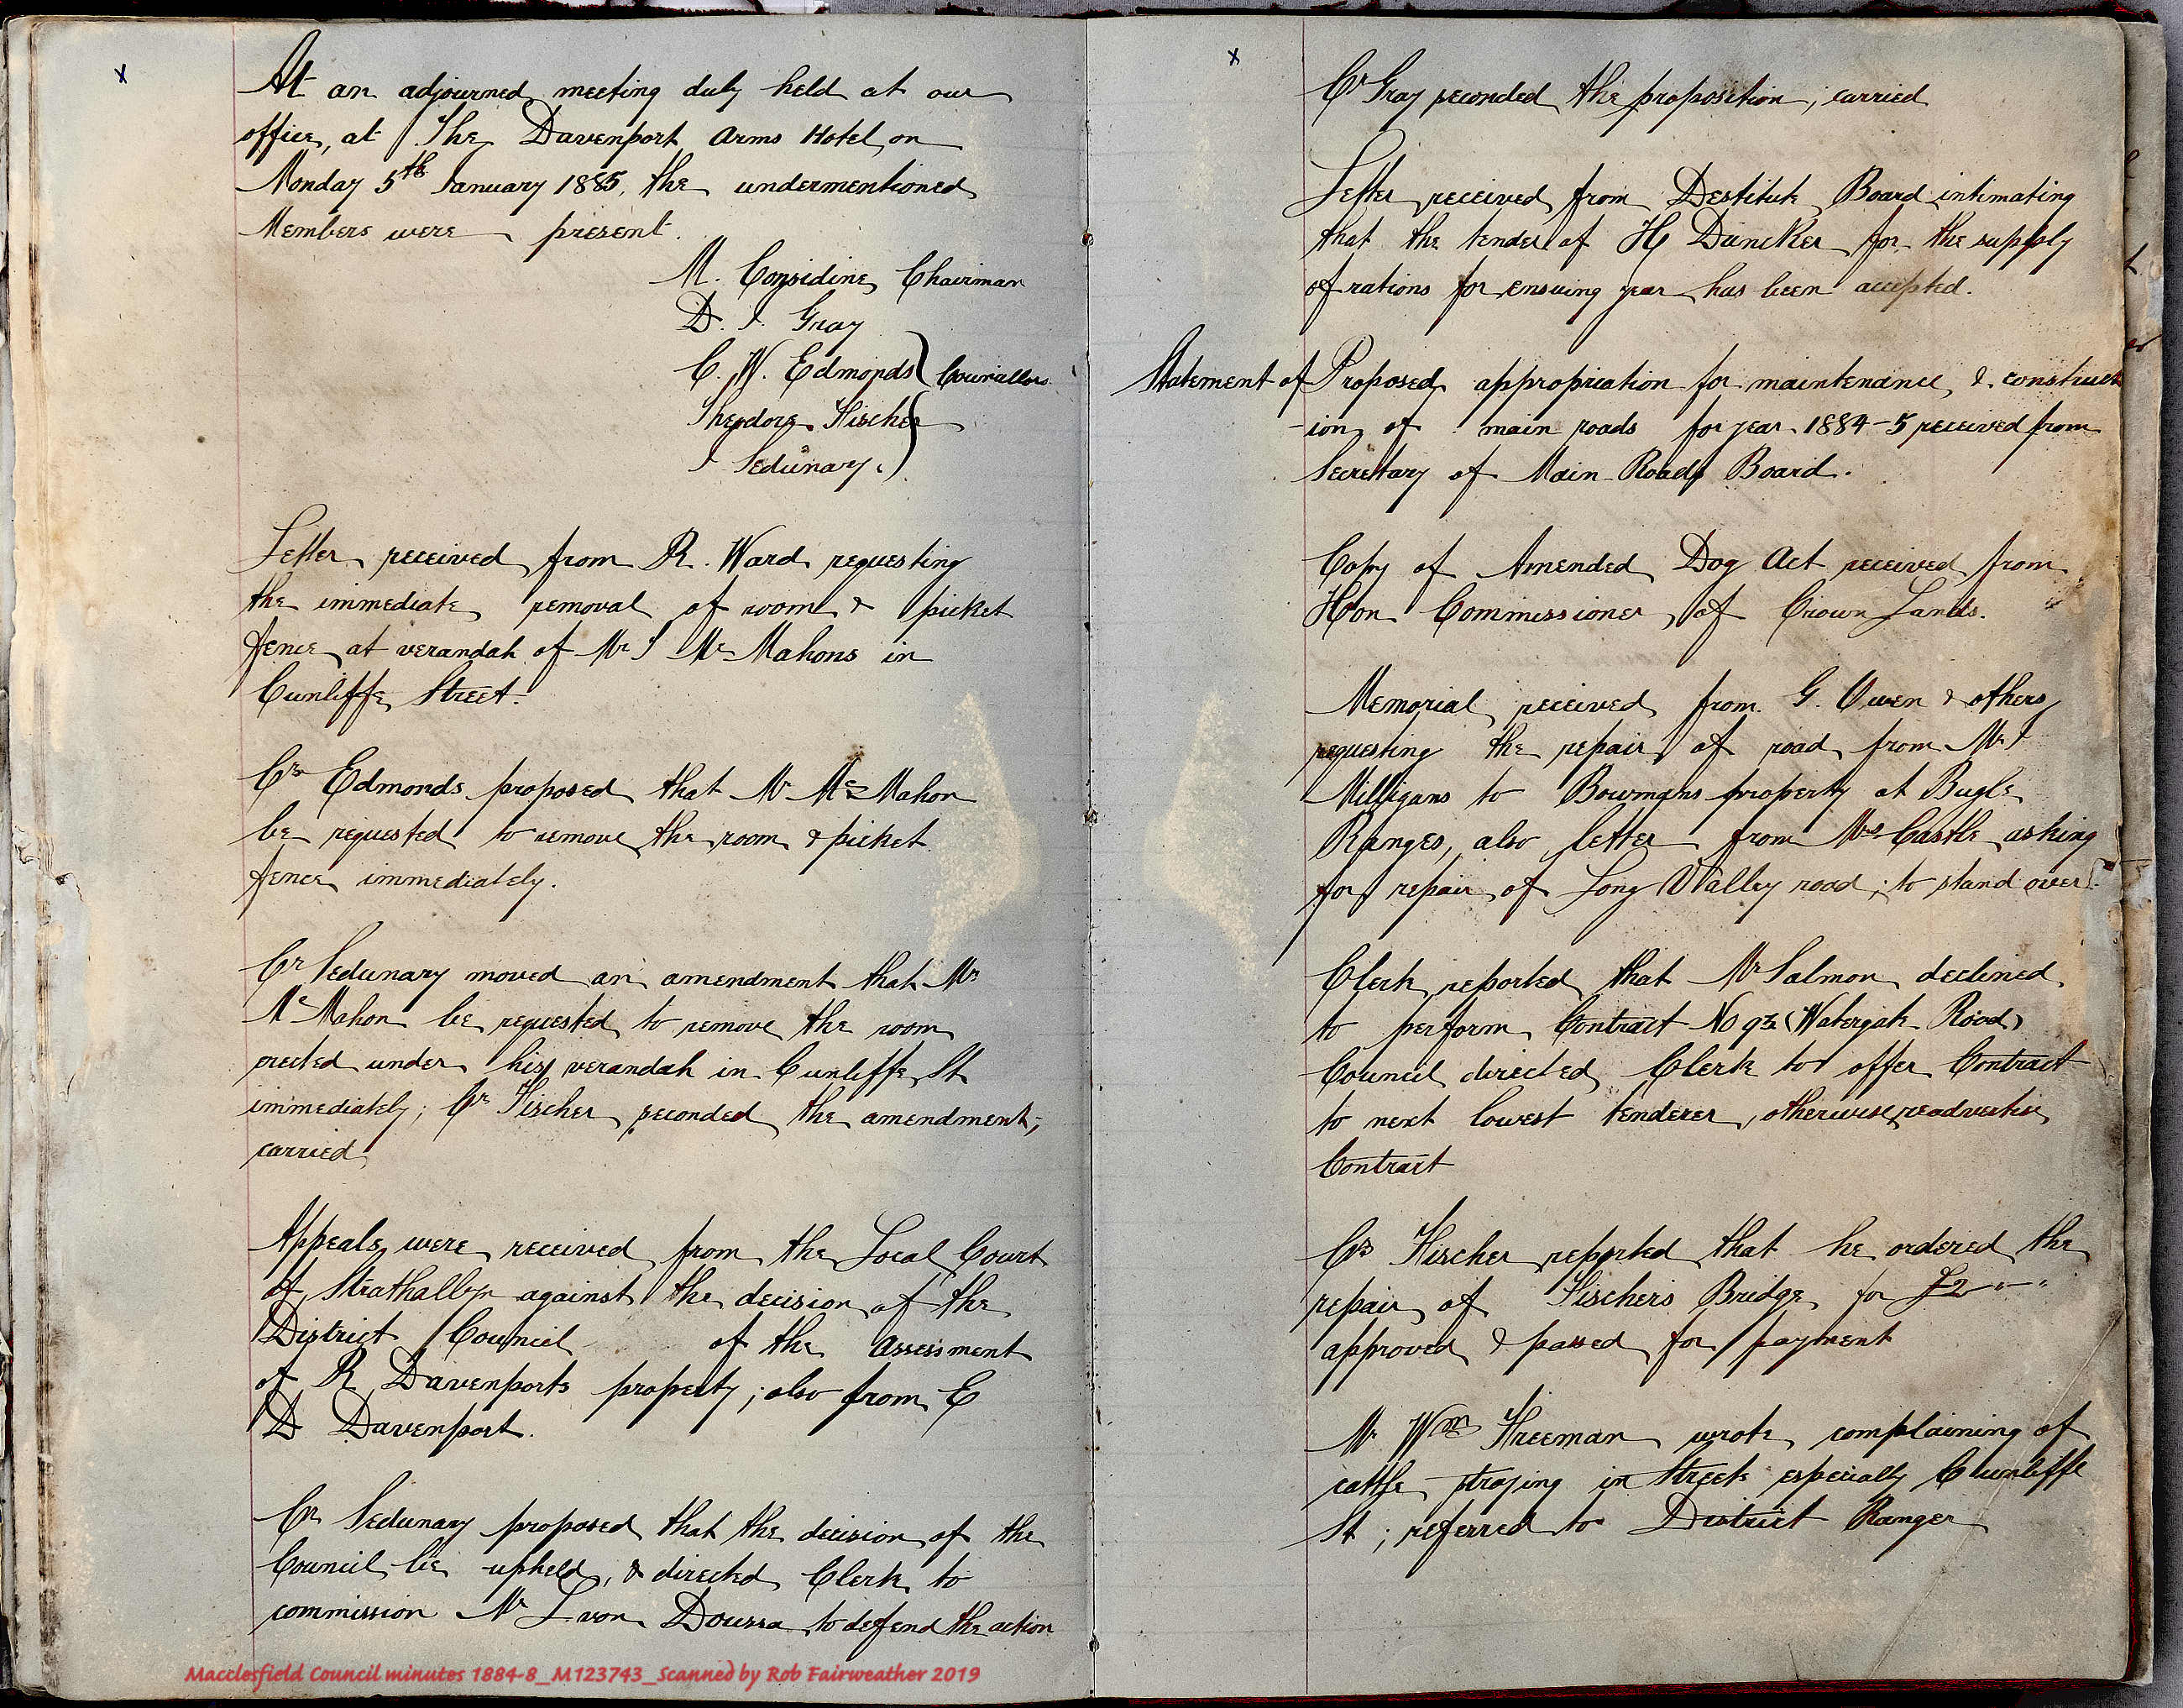 x
At an adjourned meeting duly held at our
office, at The Davenport Arms Hotel, on
Monday 5th January 1885, the undermentioned
Members were present.
M. Considine Chairman
D. J. Gray
C. W. Edmonds Councillors
Theodore Fischer
J Sedunary.
Letter received from R. Ward requesting
the immediate removal of room & picket
fence at verandah of Mr J McMahons in
Cunliffe Street.
Cr Edmonds proposed that Mr McMahon
be requested to remove the room & picket
fence immediately.
Cr Sedunary moved an amendment that Mr
McMahon be requested to remove the room
erected under his verandah in Cunliffe St
immediately; Cr Fischer seconded the amendment;
carried
Appeals were received from the Local Court
of Strathalbyn against the decision of the
District Council of the Assessment
of R Davenports property; also from E
D Davenport.
Cr Sedunary proposed that the decision of the
Council be upheld, & directed Clerk to
commission Mr L von Doussa to defend the action
x
Cr Gray seconded the proposition; carried
Letter received from Destitute Board intimating
that the tender of H Duncker for the supply
of rations for ensuing year has been accepted.
Statement of Proposed appropriation for maintenance & construct
-ion of main roads for year 1884-5 received from
Secretary of Main Roads Board.
Copy of Amended Dog Act received from
Hon Commissioner of Crown Lands.
Memorial received from G. Owen & others
requesting the repair of road from Mr J
Milligans to Bowmans property at Bugle
Ranges, also letter from Mrs Castle asking
for repair of Long Valley road; to stand over.
Clerk reported that Mr Salmon declined
to perform Contract No 92 (Watergate Road)
Council directed Clerk to offer Contract
to next lowest tenderer, otherwise readvertise
Contract
Cr Fischer reported that he ordered the
repair of Fischers Bridge for £2 " - "
approved & passed for payment
Mr Wm Freeman wrote complaining of
cattle straying in Streets especially Cunliffe
St; referred to District Ranger
Macclesfield Council minutes 1884-8_M123743_Scanned by Rob Fairweather 2019